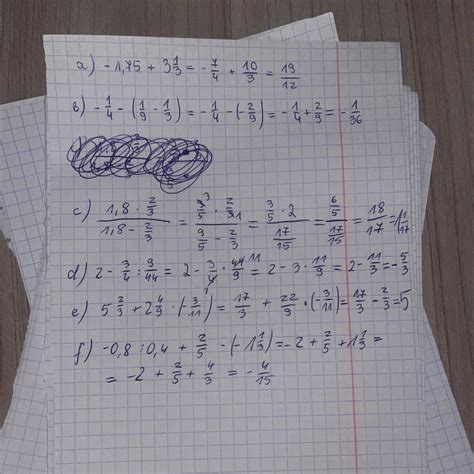 a) -1,75 + 3 1/3 = -7/4 + 10/3 = 19/12
b) -1/4 - (1/9 - 1/3) = -1/4 - (-2/9) = -1/4 + 2/9 = -1/36
c) (1,8 · 2/3)/(1,8 - 2/3) = (9/5 · 2/3)/(9/5 - 2/3) = (3/5 · 2)/(17/15) = (6/5)/(17/15) = 18/17 = 1 1/17
d) 2 - 3/4 : 9/44 = 2 - 3/4 · 44/9 = 2 - 3 · 11/9 = 2 - 11/3 = -5/3
e) 5 2/3 + 2 4/9 · (-3/11) = 17/3 + 22/9 · (-3/11) = 17/3 - 2/3 = 5
f) -0,8 : 0,4 + 2/5 - (-1 1/3) = -2 + 2/5 + 1 1/3 =
= -2 + 2/5 + 4/3 = -4/15